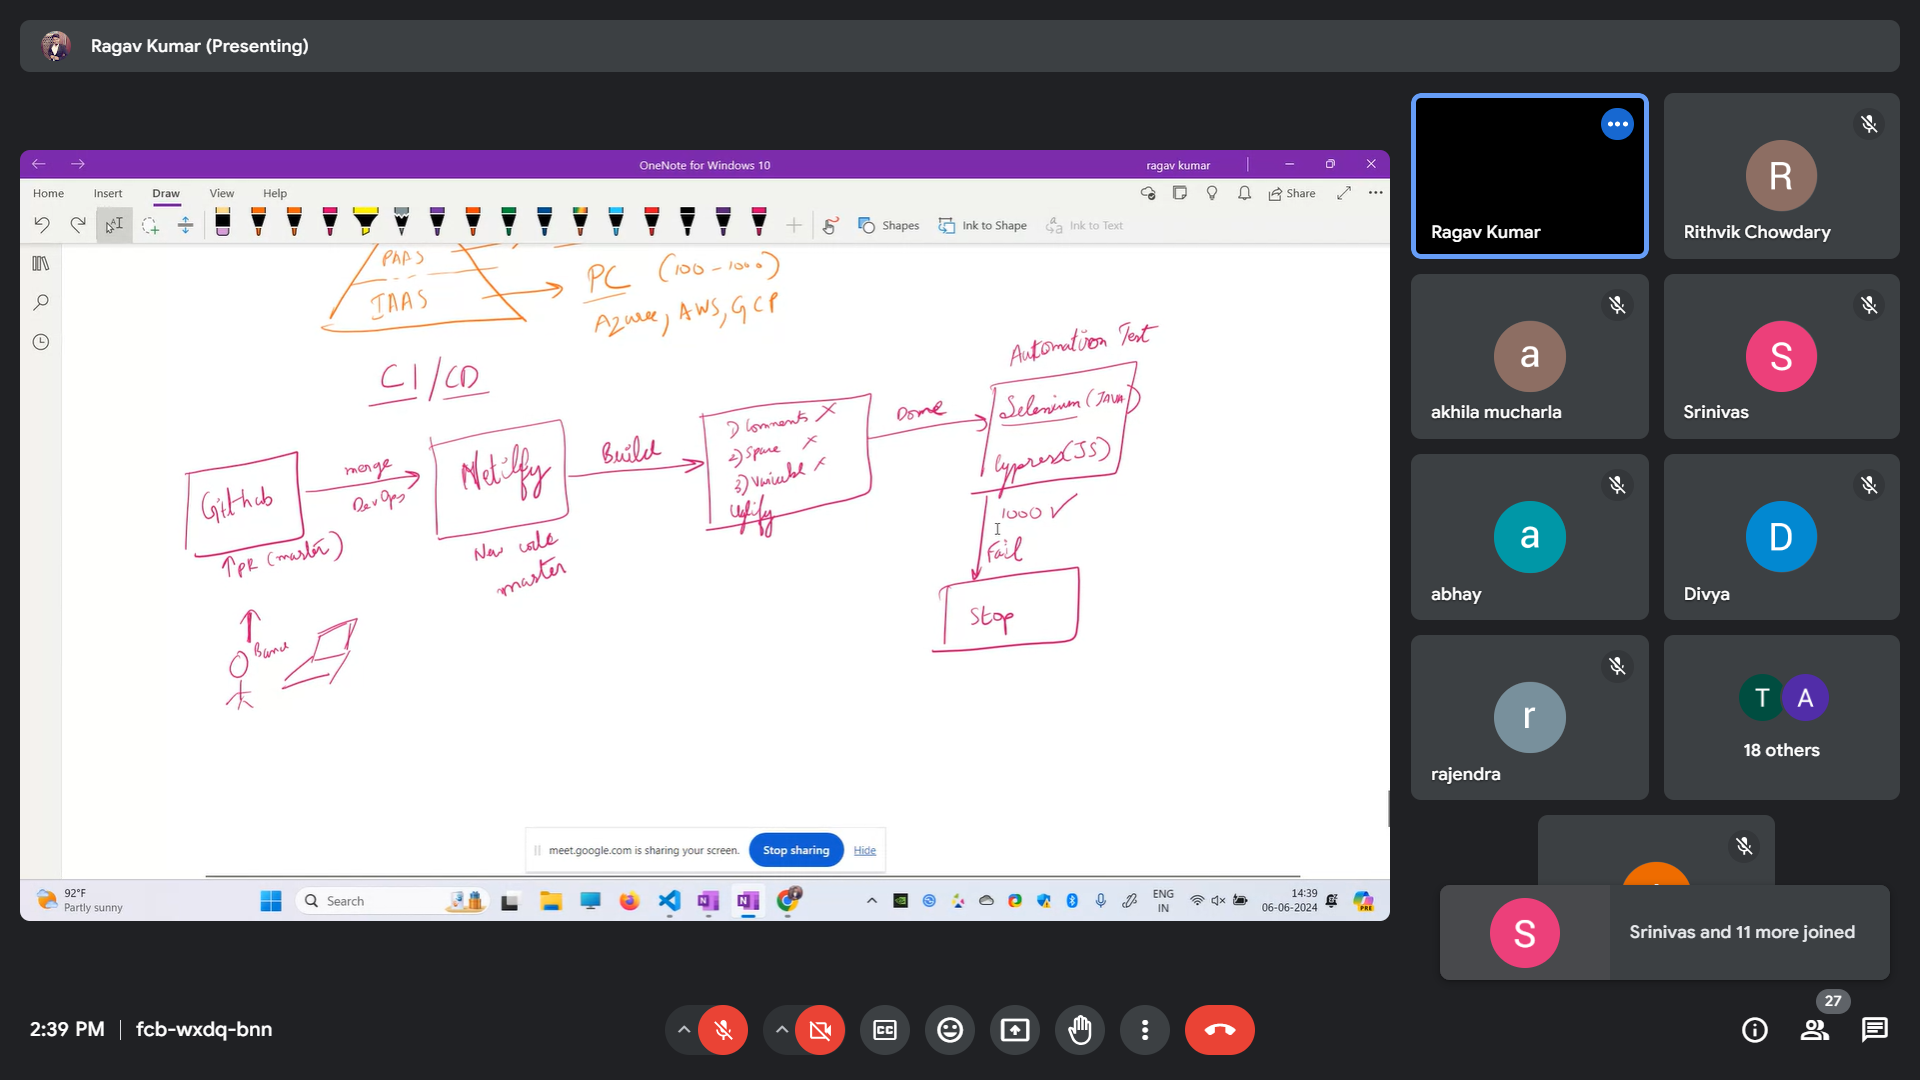 Ragav Kumar (Presenting)
OneNote for Windows 10
ragav kumar
Home Insert Draw View Help
Share
Shapes
Ink to Shape
Ink to Text
PAAS
IAAS
PC (100-1000)
Azure, AWS, GCP
CI/CD
Github
merge
DevOps
↑PR (master)
Netilfy
New code
master
Build
1) Comments X
2) Space X
3) Variable X
Uglify
Done
Automation Test
Selenium (JAVA)
Cypress(JS)
1000 ✓
Fail
Stop
meet.google.com is sharing your screen.
Stop sharing
Hide
92°F
Partly sunny
Search
ENG
IN
14:39
06-06-2024
PRE
Ragav Kumar
R
Rithvik Chowdary
a
akhila mucharla
S
Srinivas
a
abhay
D
Divya
r
rajendra
T A
18 others
S
Srinivas and 11 more joined
2:39 PM | fcb-wxdq-bnn
CC
27